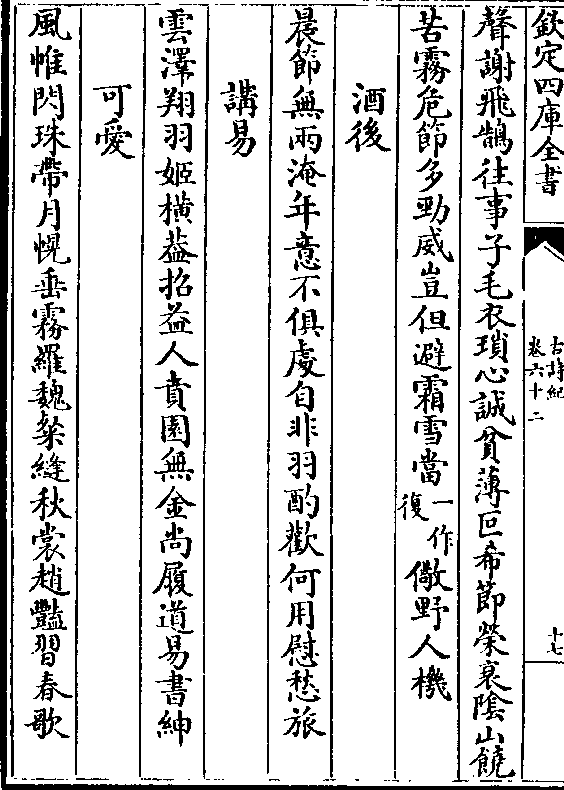 欽定四庫全書
古詩紀
卷六十二
十七
聲謝飛鵠往事子毛衣瑣心誠貧薄叵希節榮衰陰山饒
苦霧危節多勁威豈但避霜雪當一作復儆野人機
酒後
晨節無兩淹年意不俱處自非羽酌歡何用慰愁旅
講易
雲澤翔羽姬橫葢招益人賁園無金尚履道易書紳
可愛
風帷閃珠帶月幌垂霧羅魏粲縫秋裳趙豔習春歌